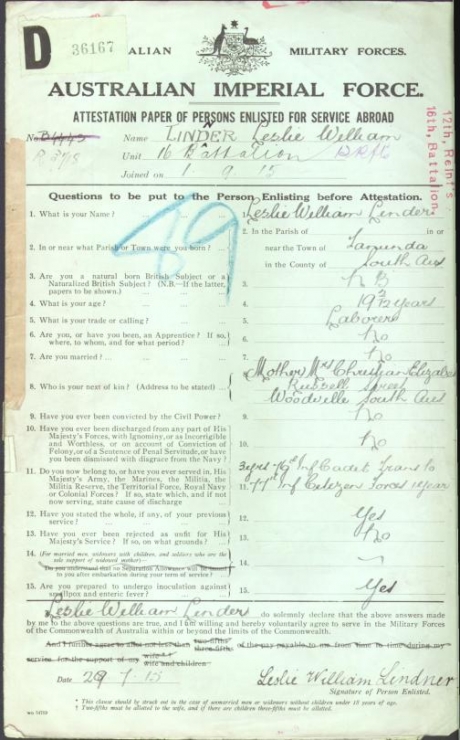 D
36167
ALIAN MILITARY FORCES.
AUSTRALIAN IMPERIAL FORCE.
ATTESTATION PAPER OF PERSONS ENLISTED FOR SERVICE ABROAD
No. Name LINDER Leslie William
Unit 16 Battalion
Joined on 1 9 15
12th. Reinfts
16th. Battalion
49
Questions to be put to the Person Enlisting before Attestation.
1. What is your Name? Leslie William Linder
2. In or near what Parish or Town were you born? 2. In the Parish of in or
near the Town of Tanunda
in the County of South Aus
3. Are you a natural born British Subject or a
Naturalized British Subject? (N.B.—If the latter,
papers to be shown.) 3. NB
4. What is your age? 4. 19 years
5. What is your trade or calling? 5. Labourer
6. Are you, or have you been, an Apprentice? If so,
where, to whom, and for what period? 6. No
7. Are you married? 7. No
8. Who is your next of kin? (Address to be stated) 8. Mother Mrs Christian
Russell Street
Woodville South Aus
9. Have you ever been convicted by the Civil Power? 9. No
10. Have you ever been discharged from any part of His
Majesty's Forces, with Ignominy, or as Incorrigible
and Worthless, or on account of Conviction of
Felony, or of a Sentence of Penal Servitude, or have
you been dismissed with disgrace from the Navy? 10. No
11. Do you now belong to, or have you ever served in, His
Majesty's Army, the Marines, the Militia, the
Militia Reserve, the Territorial Force, Royal Navy
or Colonial Forces? If so, state which, and if not
now serving, state cause of discharge 11. 3yrs 79th Inf Cadet Trans to
77th Inf Citizen Forces 1 year
12. Have you stated the whole, if any, of your previous
service? 12. Yes
13. Have you ever been rejected as unfit for His
Majesty's Service? If so, on what grounds? 13. No
14. (For married men, widowers with children, and soldiers who are the
sole support of widowed mother)—
Do you understand that no Separation Allowance will be issued
to you after embarkation during your term of service? 14. —
15. Are you prepared to undergo inoculation against
smallpox and enteric fever? 15. Yes
I, Leslie William Linder do solemnly declare that the above answers made
by me to the above questions are true, and I am willing and hereby voluntarily agree to serve in the Military Forces
of the Commonwealth of Australia within or beyond the limits of the Commonwealth.
And I further agree to allot not less than two-fifths three-fifths of the pay payable to me from time to time during my
service for the support of my wife wife and children
Date 29 7 15 Leslie William Lindner
Signature of Person Enlisted.
* This clause should be struck out in the case of unmarried men or widowers without children under 18 years of age.
† Two-fifths must be allotted to the wife, and if there are children three-fifths must be allotted.